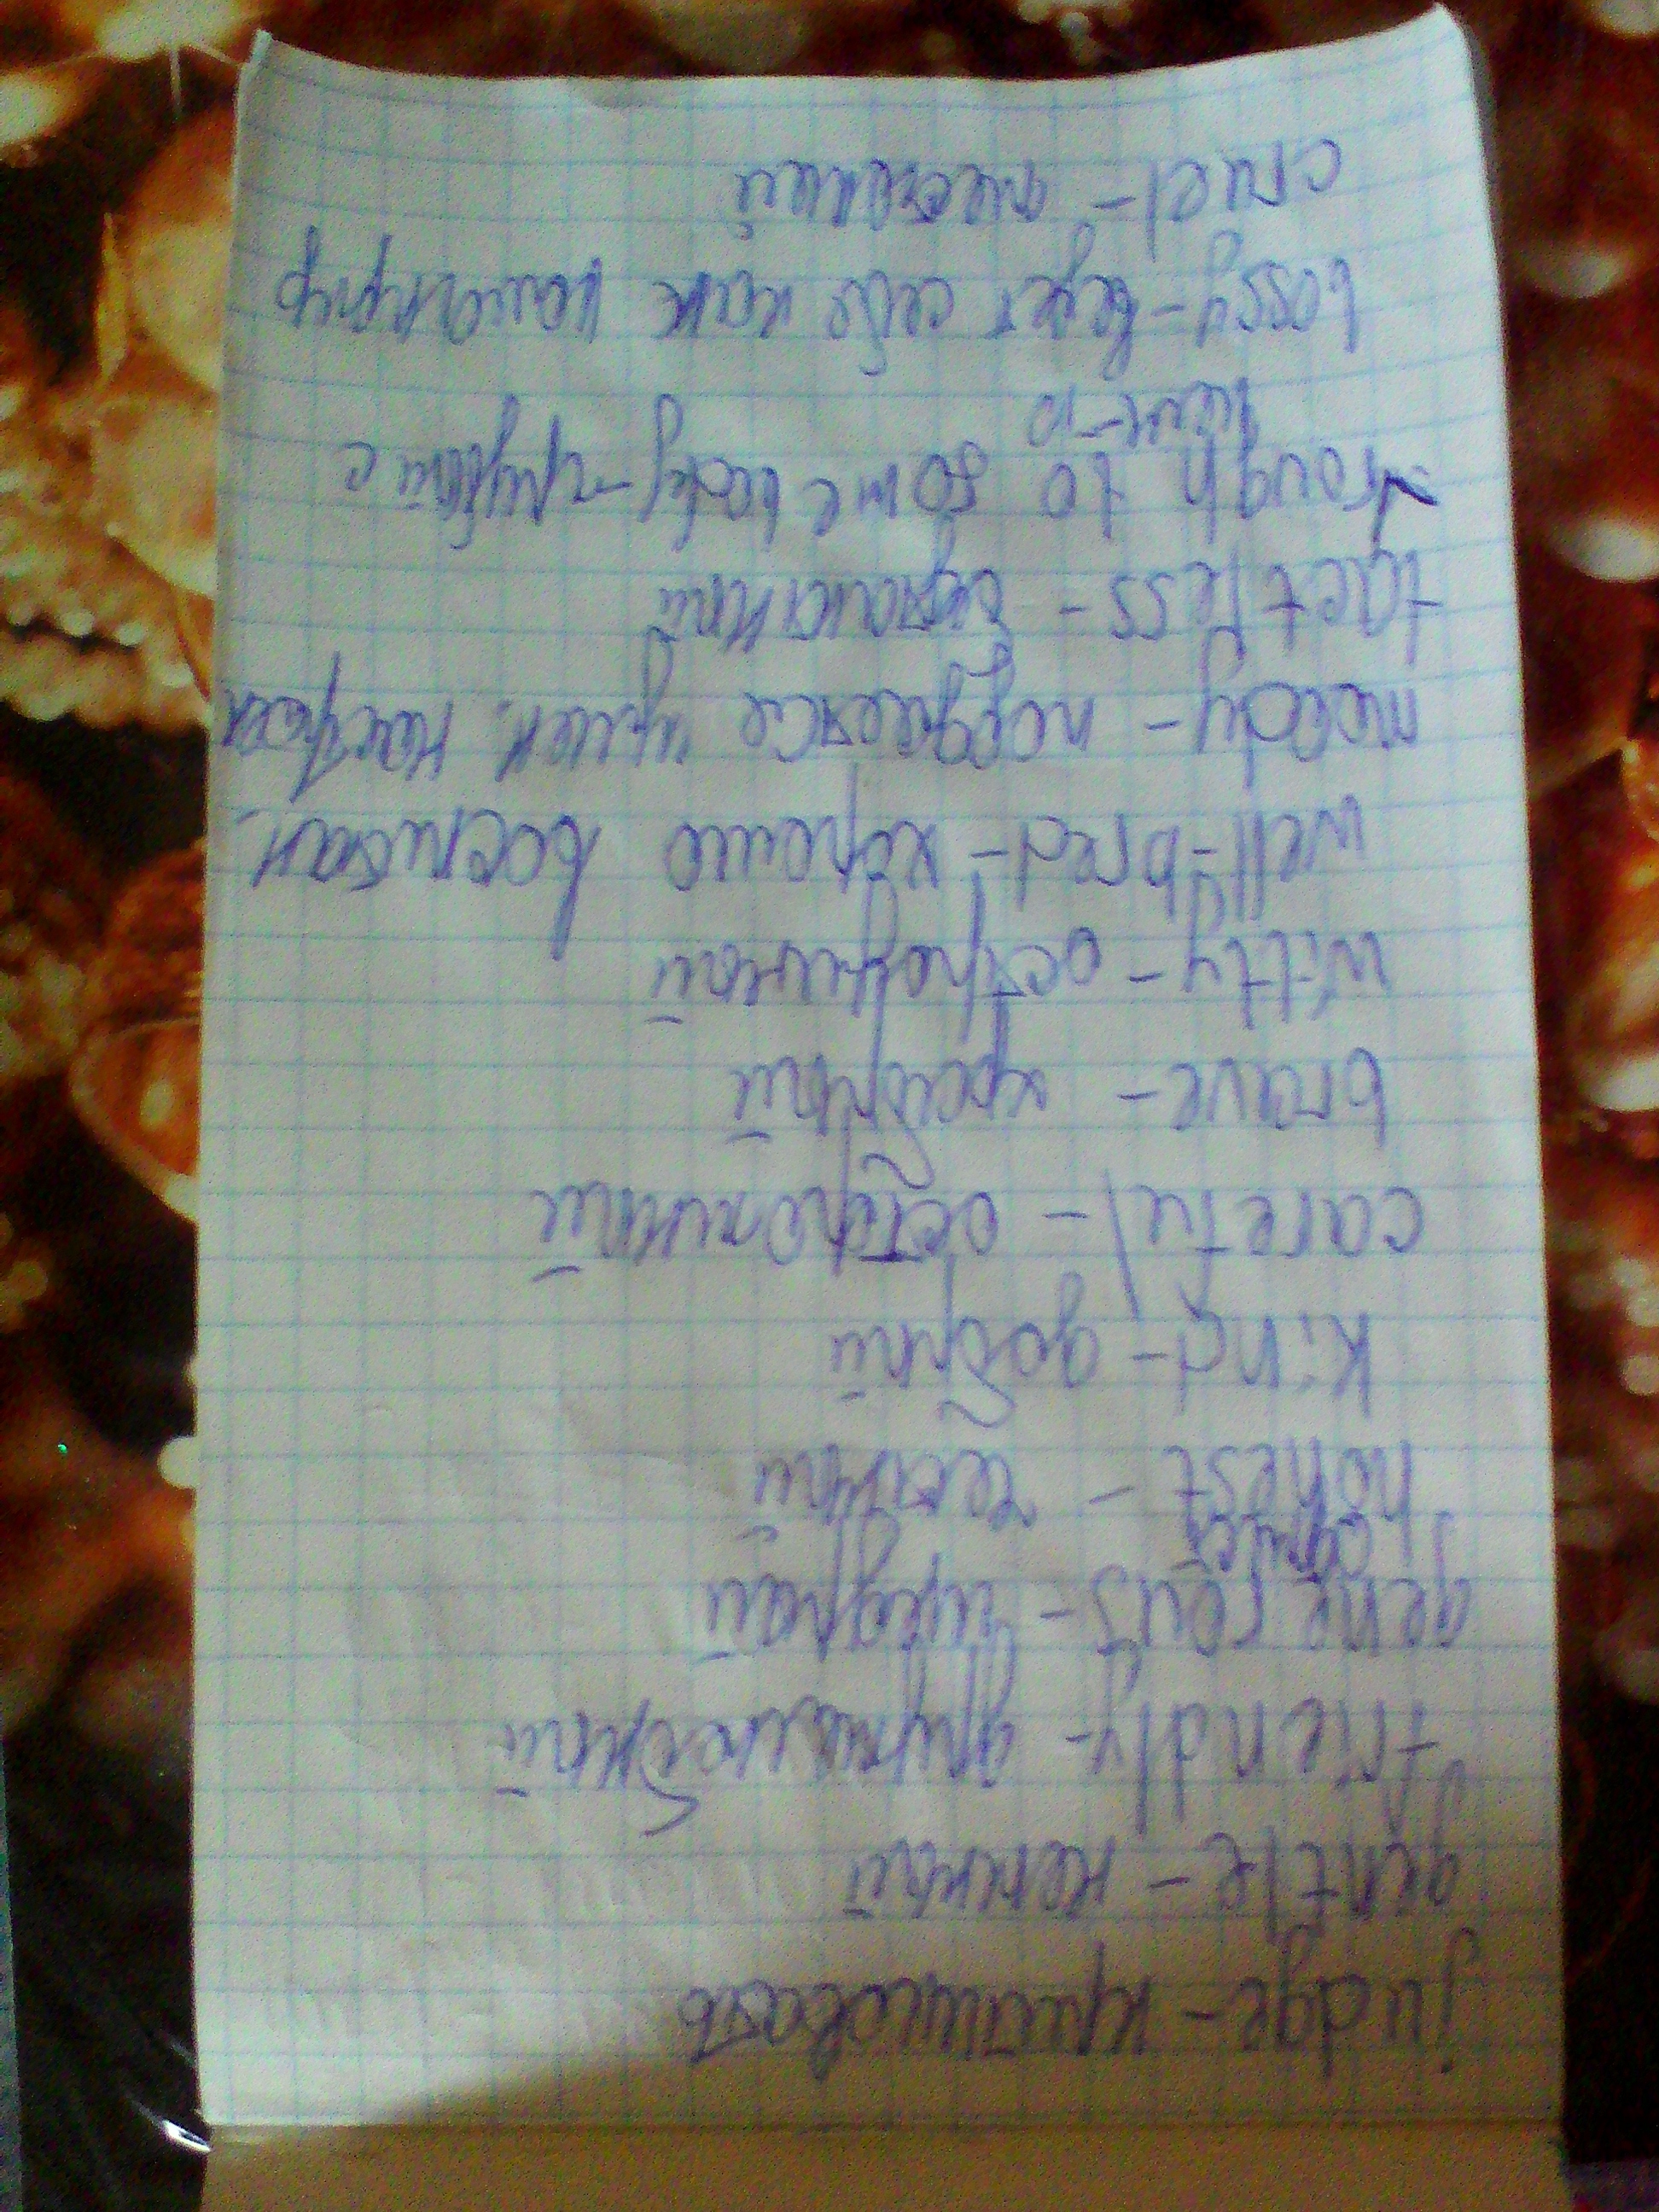 judge - критиковать
gentle - нежный
friendly - дружелюбный
generous - щедрый
honest - честный
kind - добрый
careful - осторожный
brave - храбрый
witty - остроумный
well-bred - хорошо воспитан.
moody - настроен
tactless - бестактный
rough to somebody - грубый с
кем-то
bossy - ведет себя как командир
cruel - жестокий